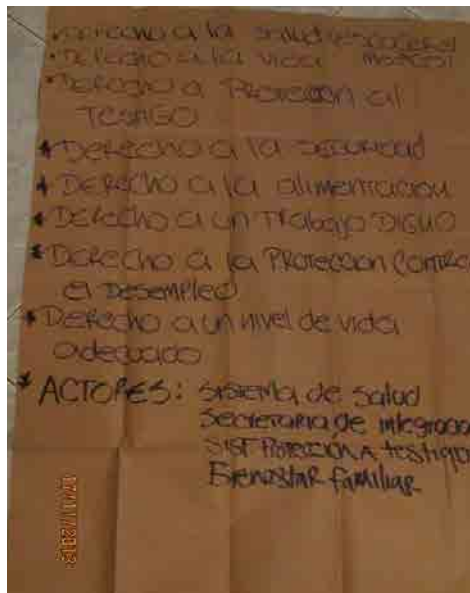 * Derecho a la salud
* Derecho a la vida
* Derecho a Protección al
Testigo
* Derecho a la seguridad
* Derecho a la alimentacion
* Derecho a un trabajo Digno
* Derecho a la Proteccion Contra
el Desempleo
* Derecho a un nivel de vida
adecuado
* ACTORES: sistema de salud
Secretaria de integracion
SIST Protección A testigo
Bienestar familiar
17/11/2012